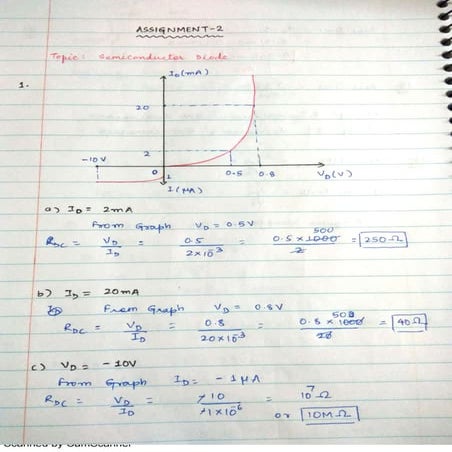 ASSIGNMENT-2
Topic: Semiconductor Diode
1.
I_D(mA)
20
2
-10V
0
1
0.5 0.8 V_D(V)
I(μA)
a) I_D = 2mA
From Graph V_D = 0.5V
R_DC = V_D/I_D = 0.5/2×10^-3 = 0.5×1000 500/2 = 250Ω
b) I_D = 20mA
From Graph V_D = 0.8V
R_DC = V_D/I_D = 0.8/20×10^-3 = 0.8×1000 50/20 = 40Ω
c) V_D = -10V
From Graph I_D = -1μA
R_DC = V_D/I_D = -10/-1×10^-6 = 10^7Ω
or 10MΩ